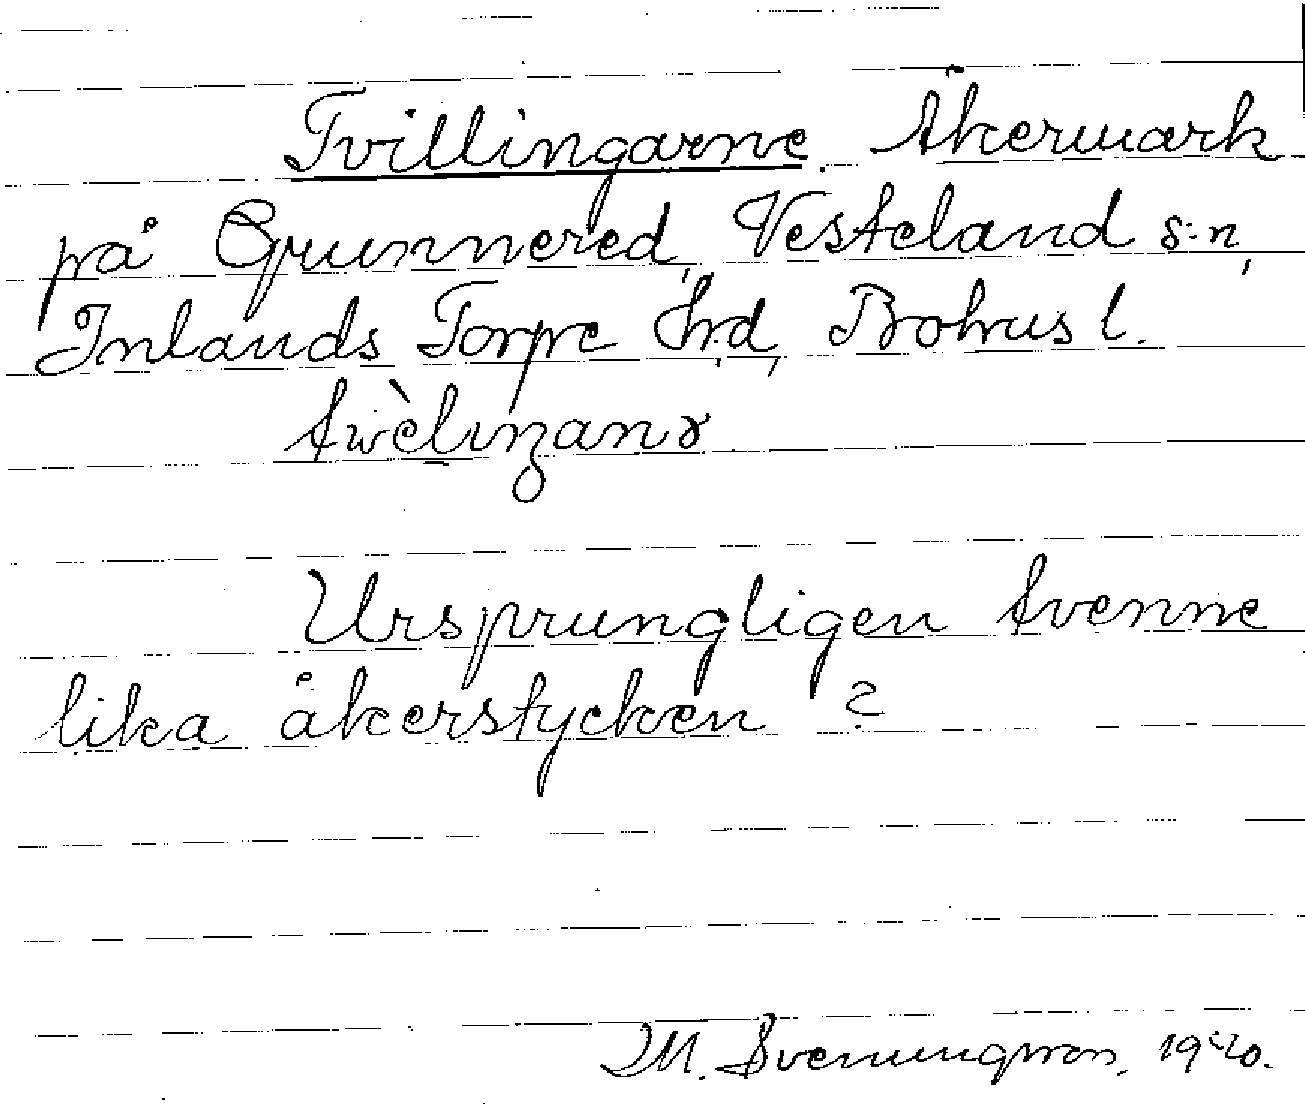 Tvillingarne. Åkermark
på Grunnered, Vesteland s:n,
Inlands Torpe Hrd, Bohus l.
Ursprungligen tvenne
lika åkerstycken?
M. Svenungsson, 1920.